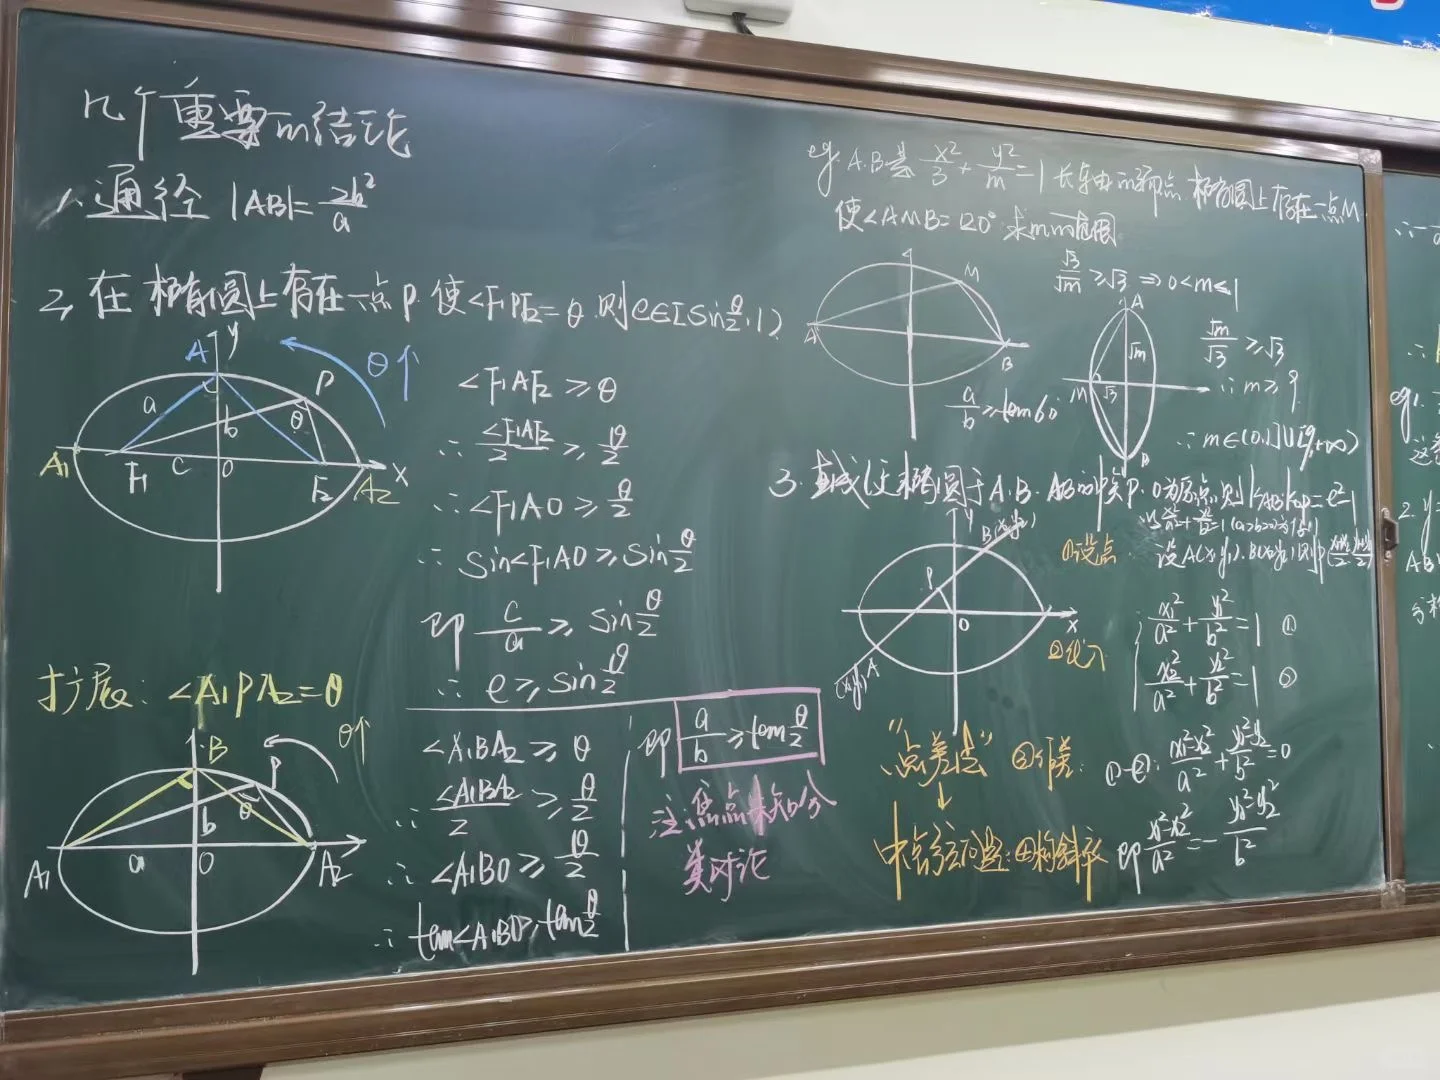 几个重要的结论
1. 通径 |AB|=2b²/a
2. 在椭圆上存在一点P. 使∠F₁PF₂=θ. 则e∈[sinθ/2, 1)
A y θ↑
a P
b θ
A₁ F₁ c O F₂ A₂ x
∠F₁AF₂≥θ
∴ ∠F₁AF₂/2 ≥ θ/2
∴ ∠F₁AO≥θ/2
∴ sin∠F₁AO≥sinθ/2
即 c/a ≥ sinθ/2
∴ e≥sinθ/2
扩展: ∠A₁PA₂=θ
B θ↑
P
b θ
A₁ a O A₂
∠A₁BA₂≥θ
∴ ∠A₁BA₂/2 ≥ θ/2
∴ ∠A₁BO≥θ/2
∴ tan∠A₁BO≥tanθ/2
即 a/b≥tanθ/2
注:焦点未知分
类讨论
eg A.B是 x²/3+y²/m=1长轴的端点. 椭圆上存在一点M
使∠AMB=120° 求m的范围
A M B
a/b≥tan60
√3/√m≥√3 ⇒0<m≤1
A
√m
M √3
B
√m/√3≥√3
∴ m≥9
∴ m∈(0,1]∪[9,+∞)
3. 直线l交椭圆于A.B. AB的中点P. O为原点. 则k_AB·k_OP=e²-1
以x²/a²+y²/b²=1(a>b>0)为例
y
B(x₂,y₂)
P
O x
A
(x₁,y₁)
①设点 设A(x₁,y₁). B(x₂,y₂), 则P(x₁+x₂/2, y₁+y₂/2)
②代入 x₁²/a²+y₁²/b²=1 ①
x₂²/a²+y₂²/b²=1 ②
"点差法" ③作差: ①-②: x₁²-x₂²/a²+y₁²-y₂²/b²=0
↓
中点弦问题: ④构斜率 即 x₁²-x₂²/a²=-y₁²-y₂²/b²
eg1.
2. y=
AB